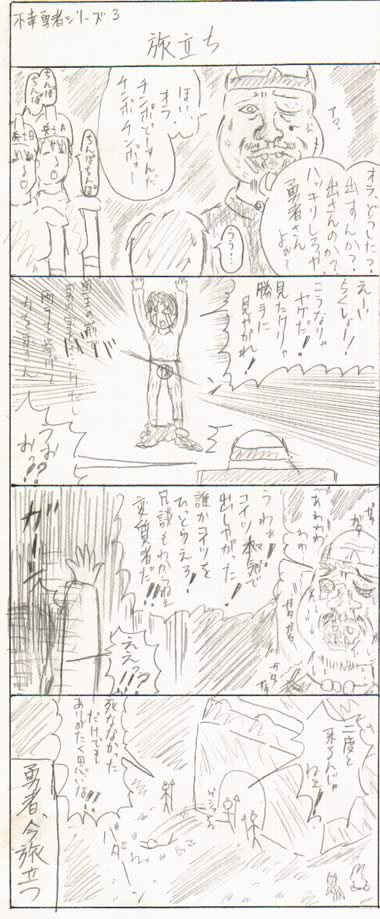 不幸勇者シリーズ3
旅立ち
アァ、
オラ、どうしたっ?
出すんか?
出さんのか?
ハッキリしろや
勇者さん
よぉ?
ほい
オラ、
チンポどーすんだ
チンポチンポォー
うう…
ちんぽ
ちんぽ
ちんぽちんぽ
えぇい
ちくしょー!!
こうなりゃ
ヤケだ!
見たけりゃ
勝手に
見やがれ!
つおおっ!!?
あわわわ
わ
ガタ
ガタ
うわぁ!
コイツ本気で
出しやがった!!
誰かコイツを
ひっとらえろ!
冗談もわからねぇ
変質者だ!!
ええっ!?
ガーン
二度と
来るんじゃ
ねぇ!!
死がなかった
だけでも
ありがたく思いな!!
勇者、今旅立つ